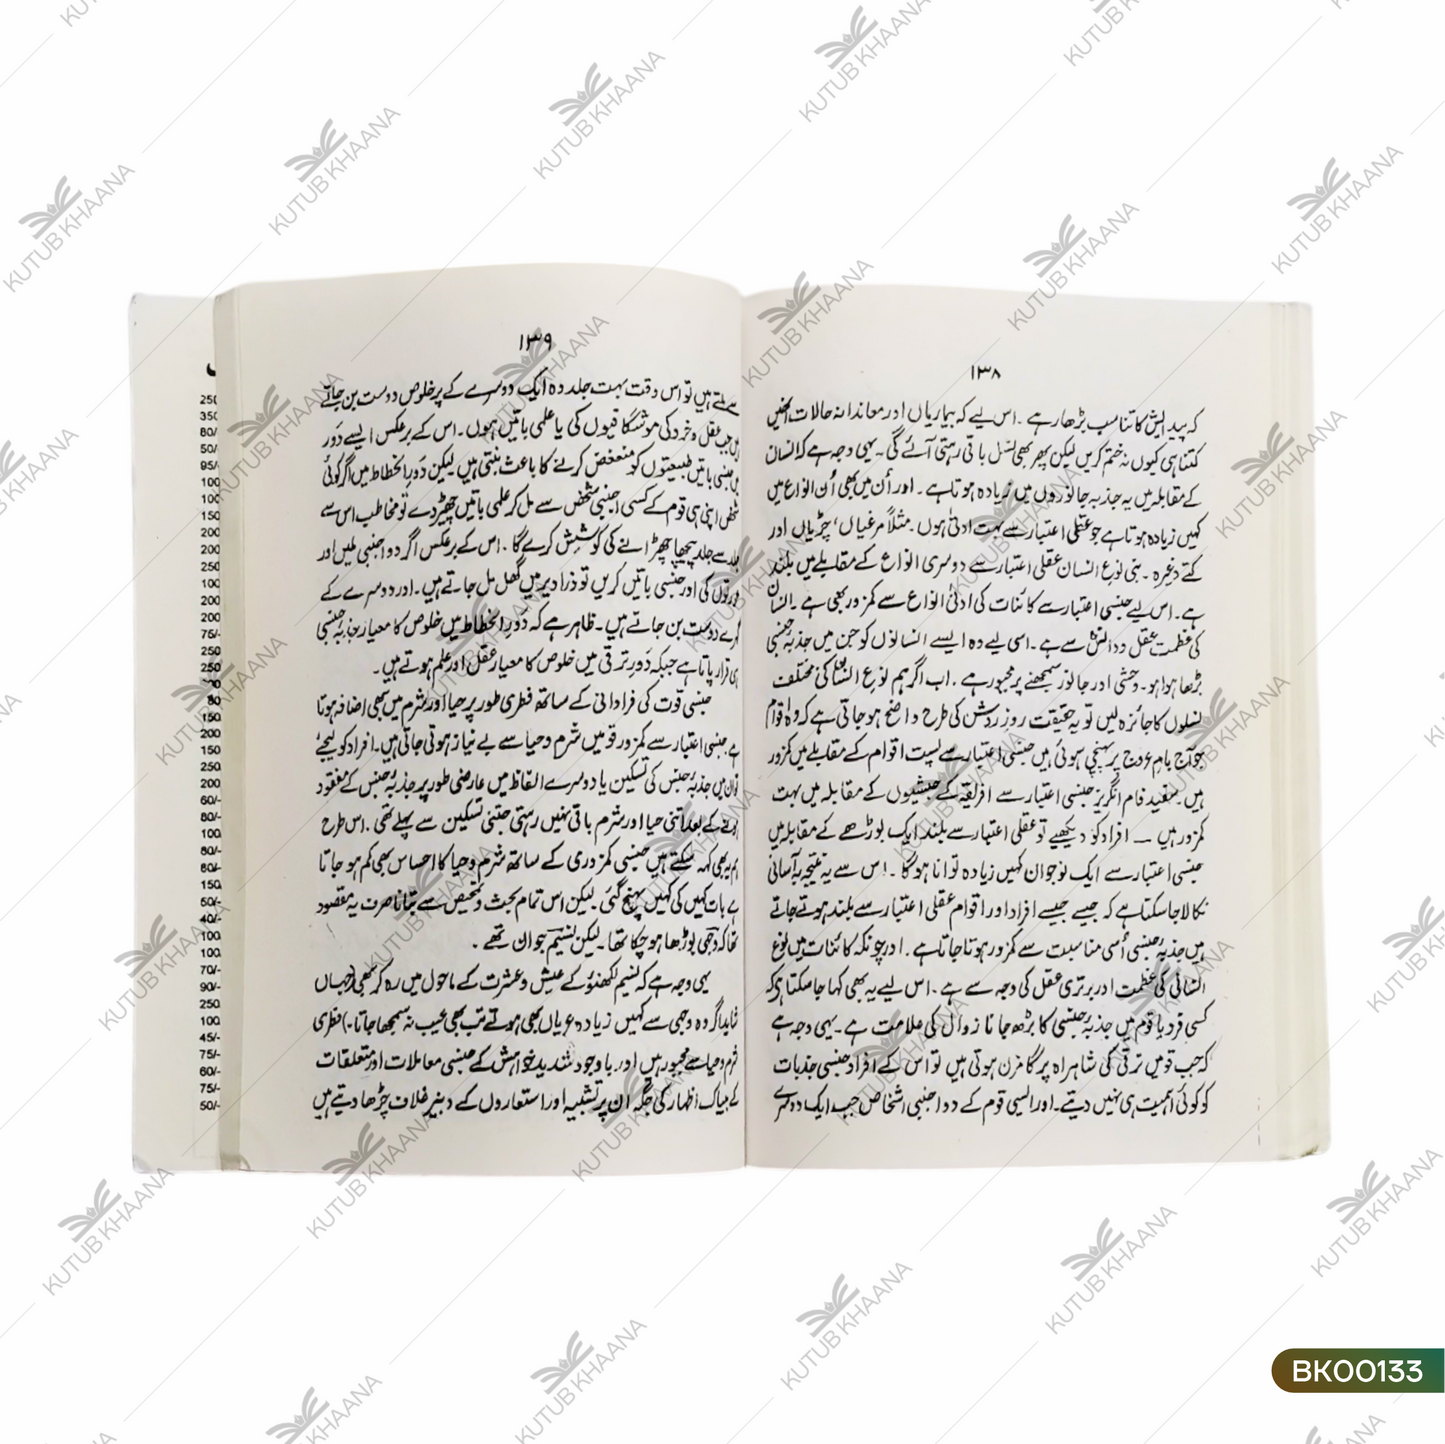 ۱۳۸
کہ پیدائش کا تناسب بڑھا رہے ۔ اس لیے کہ بیماریاں اور معاندانہ حالات انہیں
کتنا ہی کیوں نہ ختم کریں لیکن پھر بھی نسل باقی رہتی آئے گی ۔ یہی وجہ ہے کہ انسان
کے مقابلہ میں یہ جذبہ جانوروں میں زیادہ ہوتا ہے ۔ اور اُن میں بھی اُن انواع میں
کہیں زیادہ ہوتا ہے جو عقلی اعتبار سے بہت ادنیٰ ہوں ۔ مثلاً مرغیاں ، چڑیاں اور
کتے وغیرہ ۔ بنی نوع انسان عقلی اعتبار سے دوسری انواع کے مقابلے میں بلند
ہے ۔ اس لیے جنسی اعتبار سے کائنات کی ادنیٰ انواع سے کمزور بھی ہے ۔ انسان
کی عظمت عقل و دانش سے ہے ۔ اسی لیے وہ ایسے انسانوں کو جن میں جذبۂ جنسی
بڑھا ہوا ہو ۔ وحشی اور جانور سمجھنے پر مجبور ہے ۔ اب اگر ہم نوع انسانی کی مختلف
نسلوں کا جائزہ لیں تو یہ حقیقت روز روشن کی طرح واضح ہو جاتی ہے کہ وہ اقوام
جو آج بام عروج پر پہنچی ہوئی ہیں جنسی اعتبار سے پست اقوام کے مقابلے میں کمزور
ہیں ۔ سفید فام انگریز جنسی اعتبار سے افریقہ کے حبشیوں کے مقابلہ میں بہت
کمزور ہیں — افراد کو دیکھیے تو عقلی اعتبار سے بلند ایک بوڑھے کے مقابلہ میں
جنسی اعتبار سے ایک نوجوان کہیں زیادہ توانا ہوگا ۔ اس سے یہ نتیجہ بآسانی
نکالا جا سکتا ہے کہ جیسے جیسے افراد اور اقوام عقلی اعتبار سے بلند ہوتے جاتے
ہیں جذبۂ جنسی اُسی مناسبت سے کمزور ہوتا جاتا ہے ۔ اور چونکہ کائنات میں نوع
انسانی کی عظمت اور برتری عقل کی وجہ سے ہے ۔ اس لیے یہ بھی کہا جا سکتا ہے کہ
کسی فرد یا قوم میں جذبۂ جنسی کا بڑھ جانا زوال کی علامت ہے ۔ یہی وجہ ہے
کہ جب قومیں ترقی کی شاہراہ پر گامزن ہوتی ہیں تو اس کے افراد جنسی جذبات
کو کوئی اہمیت ہی نہیں دیتے ۔ اور ایسی قوم کے دو اجنبی اشخاص جب ایک دوسرے
۱۳۹
سے ملتے ہیں تو اس وقت بہت جلد وہ ایک دوسرے کے پر خلوص دوست بن جاتے
ہیں جب عقل و خرد کی موشگافیوں کی یا علمی باتیں ہوں ۔ اس کے برعکس ایسے دَور
میں جنسی باتیں طبیعتوں کو منغض کرنے کا باعث بنتی ہیں لیکن دَورِ انحطاط میں اگر کوئی
شخص اپنی ہی قوم کے کسی اجنبی شخص سے مل کر علمی باتیں چھیڑ دے تو مخاطب اس سے
جلد سے جلد پیچھا چھڑانے کی کوشش کرے گا ۔ اس کے برعکس اگر دو اجنبی ملیں اور
عورتوں کی اور جنسی باتیں کریں تو ذرا دیر میں گھل مل جاتے ہیں ۔ اور دوسرے کے
گہرے دوست بن جاتے ہیں ۔ ظاہر ہے کہ دَورِ انحطاط میں خلوص کا معیار جذبۂ جنسی
ہی قرار پاتا ہے جبکہ دَورِ ترقی میں خلوص کا معیار عقل اور علم ہوتے ہیں ۔
جنسی قوت کی فراوانی کے ساتھ فطری طور پر حیا اور شرم میں بھی اضافہ ہوتا
ہے جنسی اعتبار سے کمزور قومیں شرم و حیا سے بے نیاز ہوتی جاتی ہیں ۔ افراد کو لیجیے
تو ان میں جذبۂ جنس کی تسکین یا دوسرے الفاظ میں عارضی طور پر جذبۂ جنس کے مفقود
ہونے کے بعد اتنی حیا اور شرم باقی نہیں رہتی جتنی تسکین سے پہلے تھی ۔ اس طرح
ہم یہ بھی کہہ سکتے ہیں جنسی کمزوری کے ساتھ شرم و حیا کا احساس بھی کم ہو جاتا
ہے بات کہیں کی کہیں پہنچ گئی لیکن اس تمام بحث و تمحیص سے بتانا صرف یہ مقصود
تھا کہ وجہی بوڑھا ہو چکا تھا ۔ لیکن نسیم جوان تھے ۔
یہی وجہ ہے کہ نسیم لکھنؤ کے عیش و عشرت کے ماحول میں رہ کر بھی (جہاں
شاید اگر وہ وجہی سے کہیں زیادہ عریاں بھی ہوتے تب بھی عیب نہ سمجھا جاتا ۔) فطری
شرم و حیا سے مجبور ہیں اور باوجود شدید خواہش کے جنسی معاملات اور متعلقات
کے بیباک اظہار کی جگہ ان پر تشبیہ اور استعاروں کے دبیز غلاف چڑھا دیتے ہیں
250
350
80/-
50/-
95/-
100
100
150
200
200
250
100
200
200
75/-
250
250
80
150
200
150
250
200
60/-
80/-
100
80/-
60/-
150
50/-
40/-
100
100
70/-
90/-
250
100
45/-
75/-
60/-
75/-
50/-
KUTUB KHAANA
BK00133